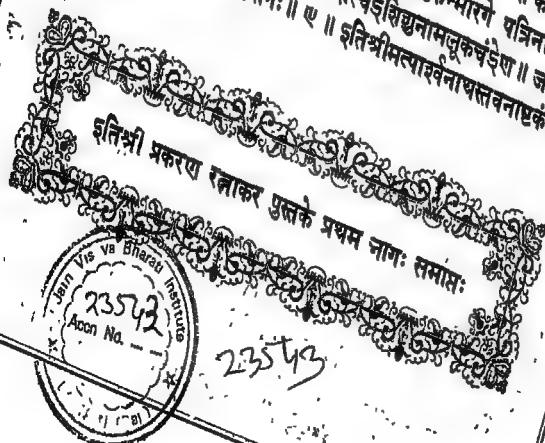 पत्रिन
इतिश्रीमत्पार्श्वनाथस्तवनाष्टकं
इतिश्री प्रकरण रत्नाकर पुस्तके प्रथम नागः समाप्तः
Jain Vis va Bharati Institute
23543
Accn No.
23543